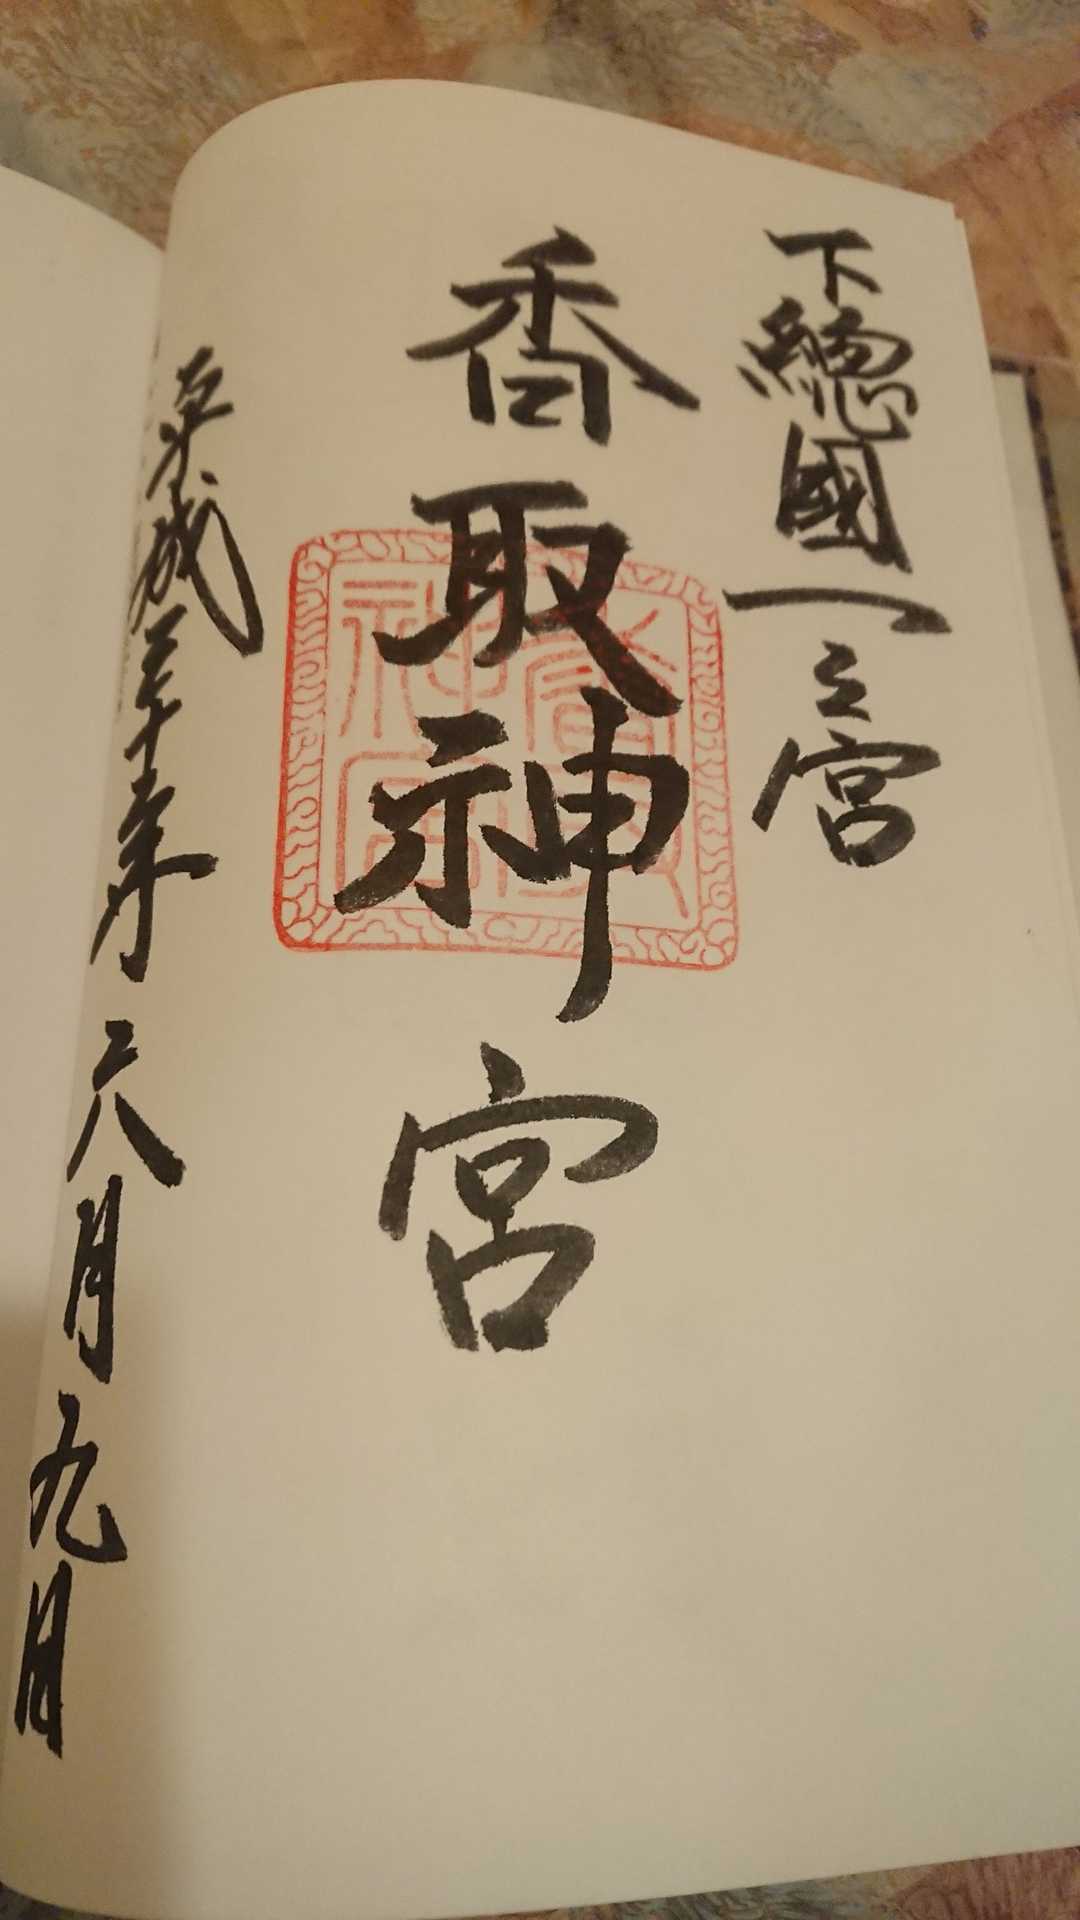 下總國一之宮
香取神宮
香取神宮
平成三十年六月九日